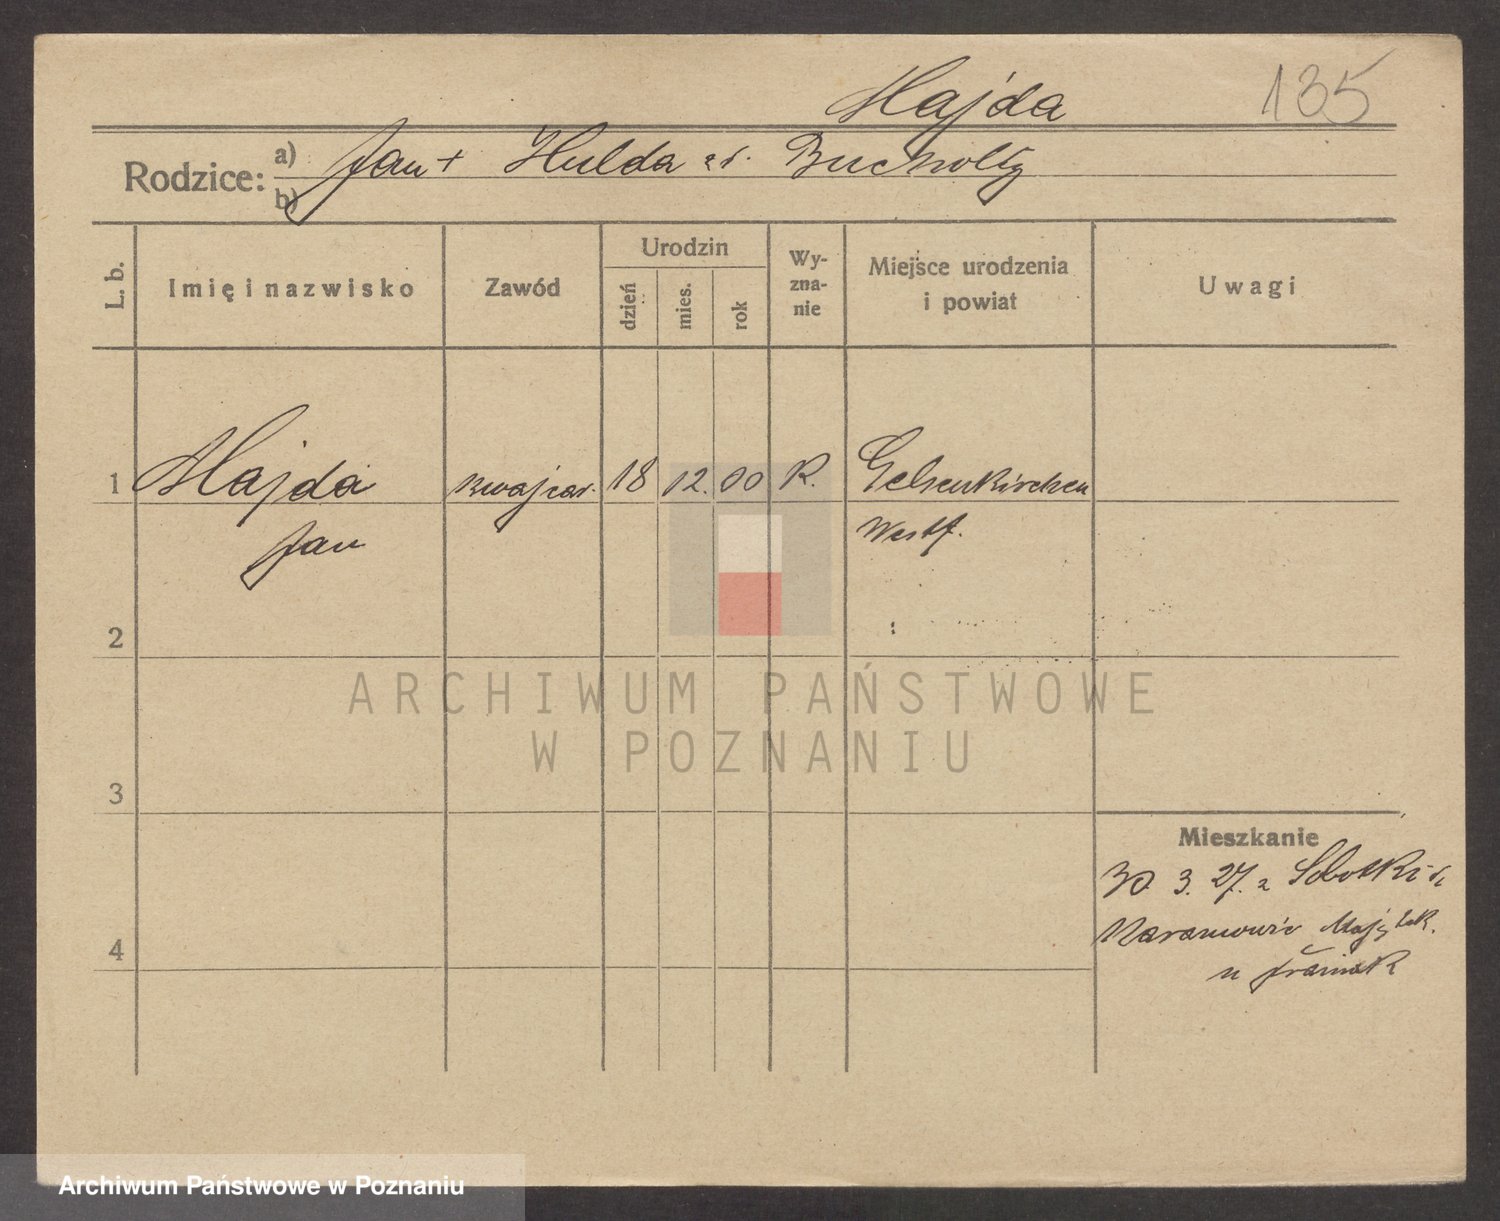 Hajda
135
Rodzice:
a) Jan + Hulda z d. Bucholtz
b)
L. b.
Imię i nazwisko
Zawód
Urodzin
dzień
mies.
rok
Wy-
zna-
nie
Miejsce urodzenia
i powiat
Uwagi
1 Hajda szwajcar. 18 12. 00 R. Gelsenkirchen
Jan Westf.
2
3
4
Mieszkanie
30. 3. 27. z Sobótki
Karamowic Majętek.
u
ARCHIWUM PAŃSTWOWE
W POZNANIU
Archiwum Państwowe w Poznaniu